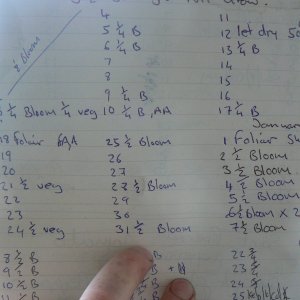 4 11
5 ¼ B 12 let dry
6 ¼ B 13 ¼ B
7 14
½ Bloom 8 15
9 ¼ B 16
¼ Bloom ¼ veg 10 ¼ B, AA 17 ¼ B
January
18 Foliar SAA 25 ½ Bloom 1 Foliar
19 26 2 ½ Bloom
20 27 3 ½ Bloom
21 ½ veg 28 ½ Bloom 4 ½ Bloom
22 29 5 ½ Bloom
23 30 6 ½ Bloom x 2
24 ½ veg 31 ½ Bloom 7 ½ Bloom
8 ½ B B 22
9 ½ B B + N 23
10 ½ B 24
11 ½ B B 25